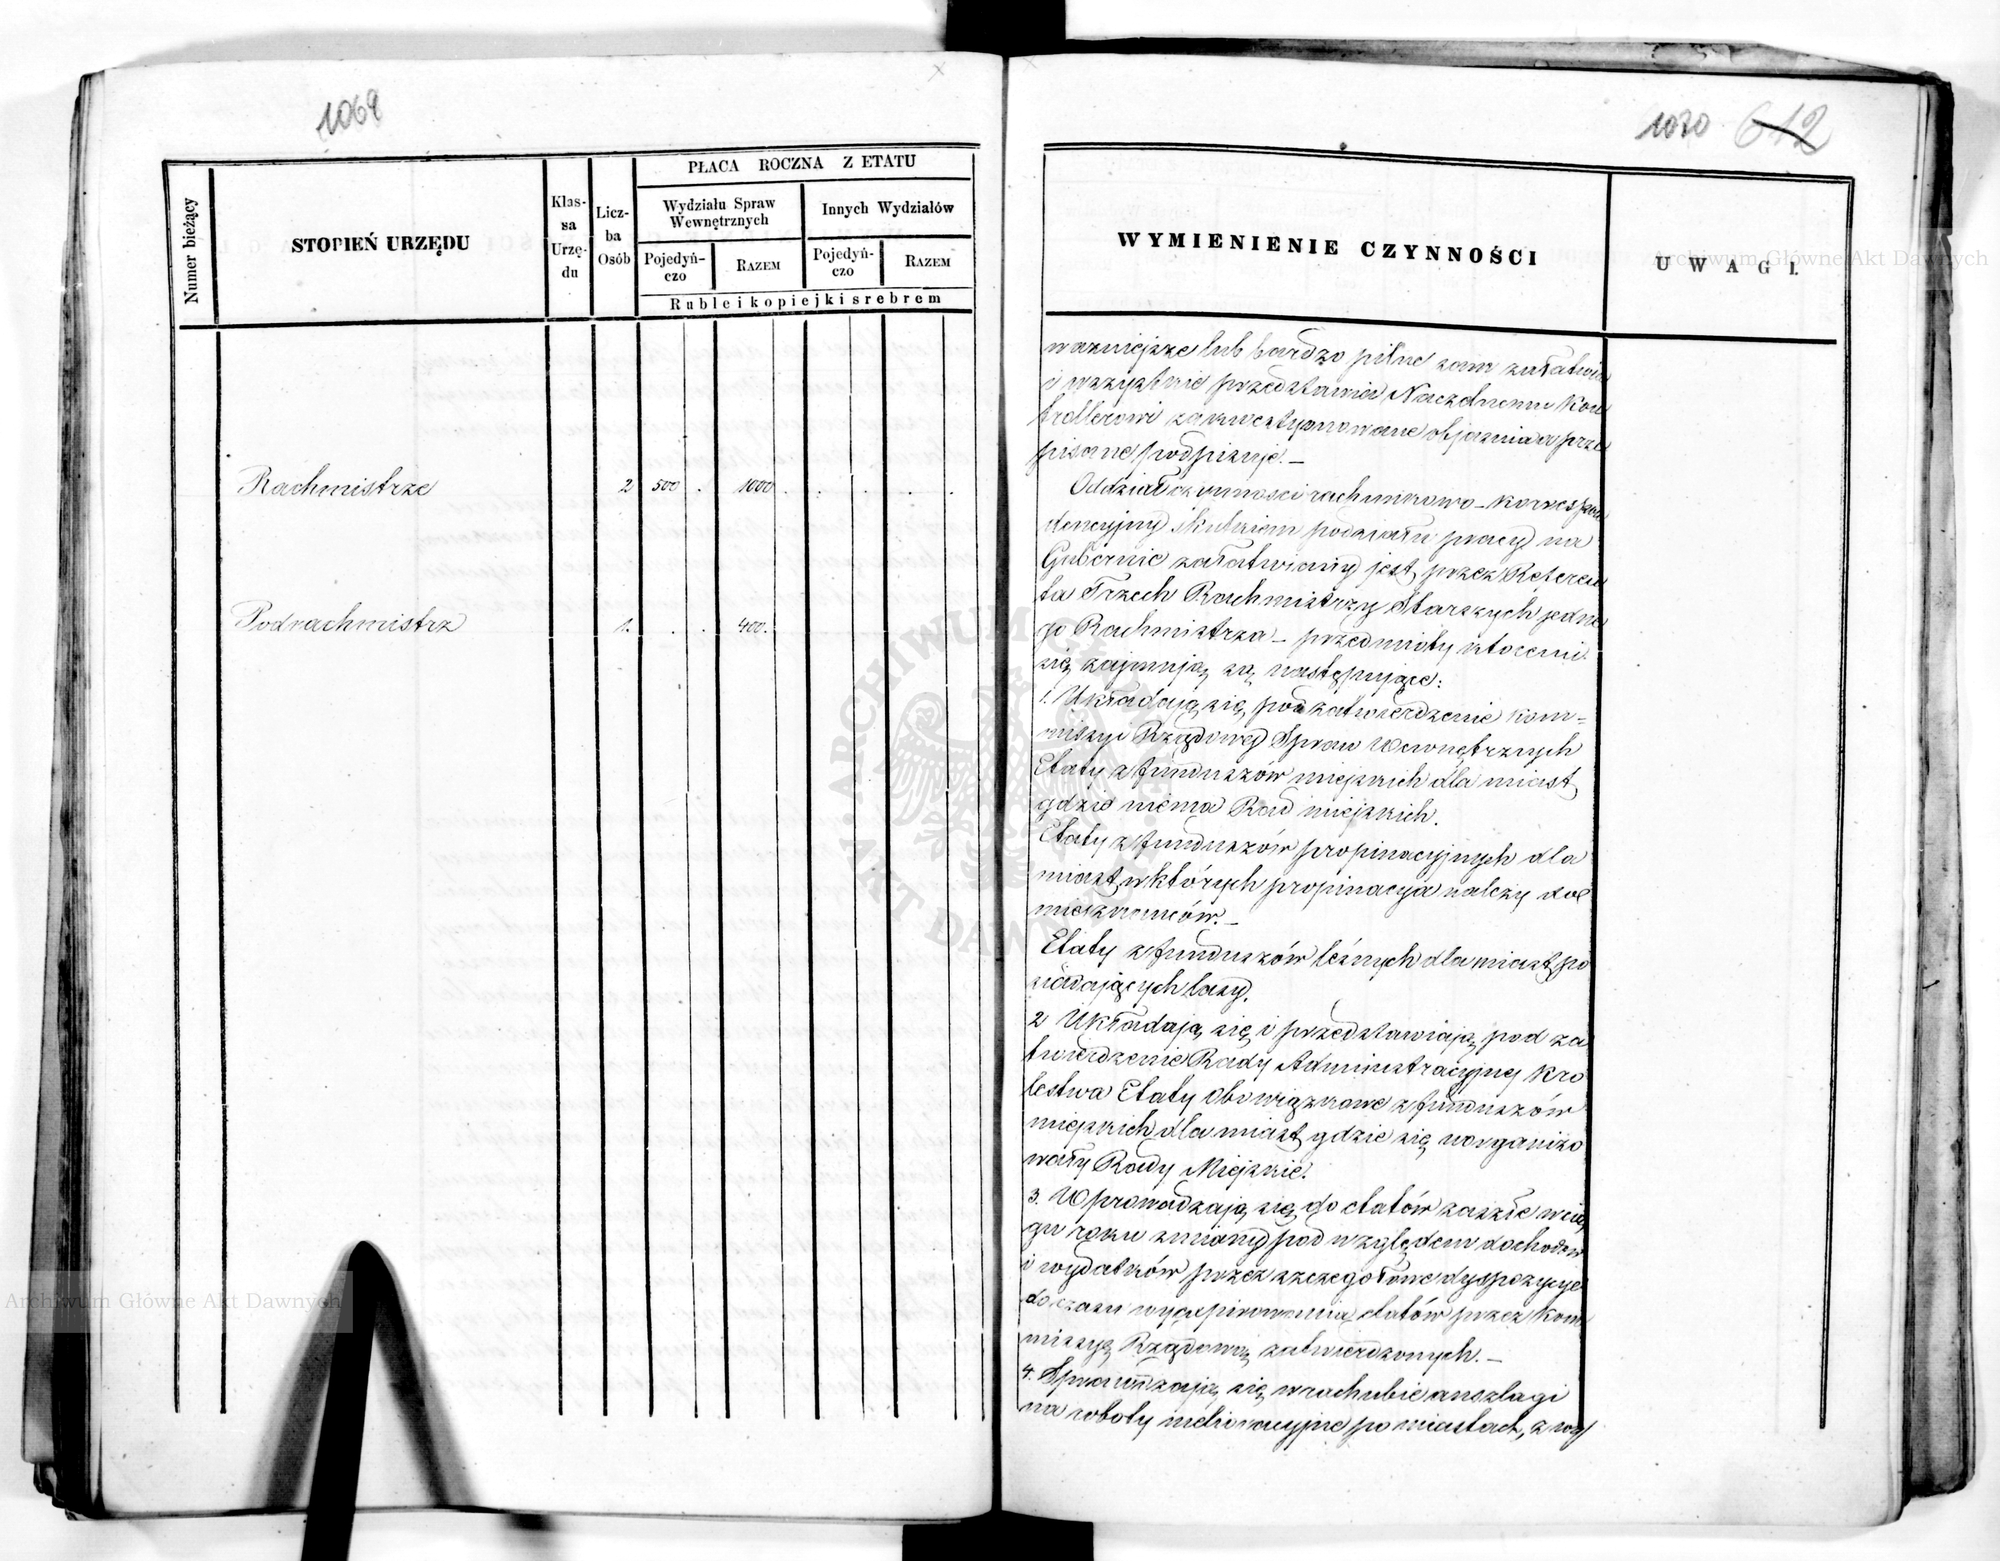 1069
Numer bieżący
STOPIEŃ URZĘDU
Klas-
sa
Urzę-
du
Licz-
ba
Osób
PŁACA ROCZNA Z ETATU
Wydziału Spraw
Wewnętrznych
Innych Wydziałów
Pojedyń-
czo
RAZEM
Pojedyń-
czo
RAZEM
Ruble i kopiejki srebrem
Rachmistrze 2 500 . 1000 . . . . .
Podrachmistrz 1. . . 400.
1070 612
WYMIENIENIE CZYNNOŚCI
UWAGI.
ważniejsze lub bardzo pilne sam załatwia
i wszystkie przedstawia Naczelnemu Kon
trollerowi zakwestyonowane objaśnia a prze
pisane podpisuje. —
Oddział czynności rachunkowo-korrespon
dencyjny skutkiem podziału pracy na
Gubernie załatwiany jest przez Referen
ta Trzech Rachmistrzy Starszych jedne
go Rachmistrza — przedmioty któremi
się zajmują są następujące:
1. Układają się pod zatwierdzenie Kom=
missyi Rządowej Spraw Wewnętrznych
Etaty z funduszów miejskich dla miast
gdzie niema Rad miejskich.
Etaty z funduszów propinacyjnych dla
miast w których propinacya należy do
mieszkańców. —
Etaty z funduszów leśnych dla miast po
siadających lasy.
2 Układają się i przedstawiają pod za
twierdzenie Rady Administracyjnej Kró
lestwa Etaty obowiązkowe z funduszów
miejskich dla miast gdzie się uorganizo
wały Rady Miejskie.
3. Wprowadzają się do etatów zaszłe w cią
gu roku zmiany pod względem dochodów
i wydatków przez szczegółowe dyspozycye
do czasu wyexpirowania etatów przez Kom
missyę Rządową zatwierdzonych. —
4. Sprawdzają się w rachubie anszlagi
na roboty melioracyjne po miastach, z wy
ARCHIWUM GŁÓWNE AKT DAWNYCH
Archiwum Główne Akt Dawnych
Archiwum Główne Akt Dawnych